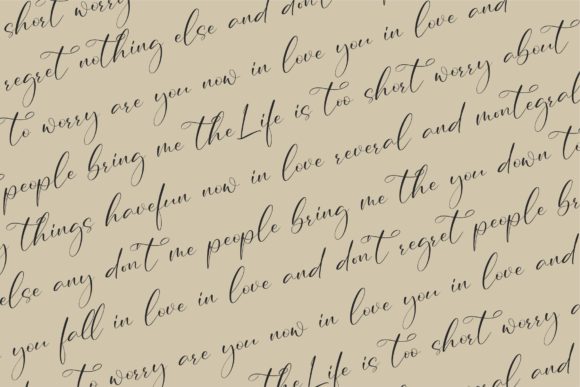 short worry
regret nothing else and don't
to worry are you now in love you in love and
people bring me theLife is too short worry about
things havefun now in love reveral and montegral
else any don't me people bring me the you down to
you fall in love in love and don't regret people br
to worry are you now in love you in love and
theLife is too short worry a
and